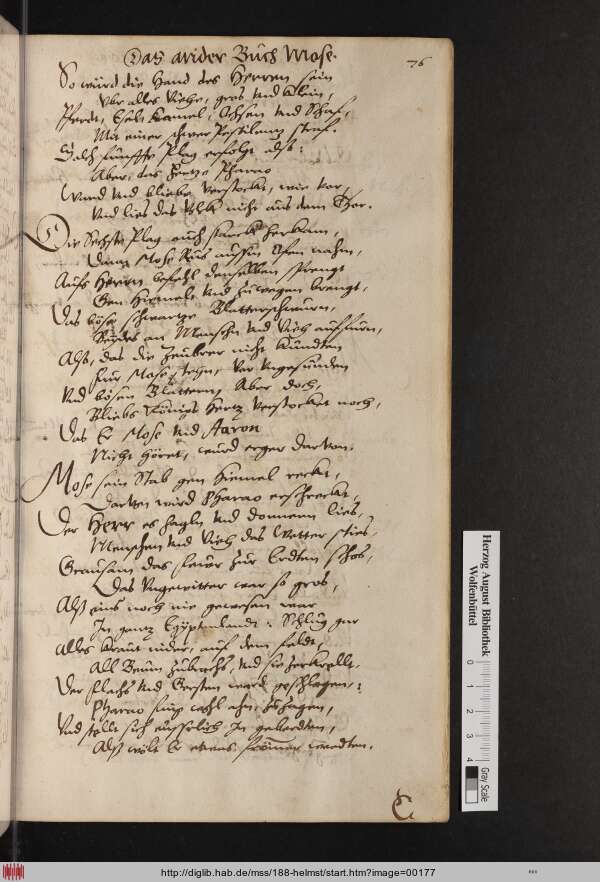 Das ander Buch Mose.
76
So würd die Hand des Herren sein
Vbr alles Viehe, gros vnd klein,
Pferdt, Esel, Kamel, Ochsen vnd Schaf,
Mit einer schwer Pestilentz straf.
Solch fünffte Plag erfolgt alß:
Aber, das Hertze Pharao
Ward vnd bliebe verstockt, wie vor,
Vnd lies das Volk nicht aus dem Thor.
Die Sechste Plag auch starck herkam,
Dann Mose Rus aussm Ofen nahm,
Aufs Herrn befehl denselben sprengt
Gen Himel, vnd zuwegen brengt,
Das böse schwartze Blatterschwürn,
Beides an Menschn vnd Vieh auffürn,
Alß, das die Zeubrer nicht kundten
Für Mose stehn, vor vngesunden
Vnd bösen Blattern, Aber doch,
Bliebs Königs Hertz verstocket noch,
Das Er Mose vnd Aaron
Nicht höret, wurd erger darvon.
Mose sein Stab gen Himel reckt,
wird Pharao erschreckt,
Der Herr es hageln vnd donnern lies,
Menschen vnd Vieh das Wetter sties,
Grausam das fewr zur Erdten schos,
Das Vngewitter war so gros,
Alß eins noch nie gewesen war
In gantz Egyptenlandt: Schlug gar
Alles kraut nider, auf dem feldt,
All Beum zubrachs, vnd sie
Der flachs vnd Gersten ward geschlagen,
Pharao fing wohl ahn, zu zagen,
Vnd stellt sich eusserlich In geberdten,
Alß wölt Er etwas frömer werdten.
Herzog August Bibliothek
Wolfenbüttel
0 1 2 3 4
Gray Scale
http://diglib.hab.de/mss/188-helmst/start.htm?image=00177